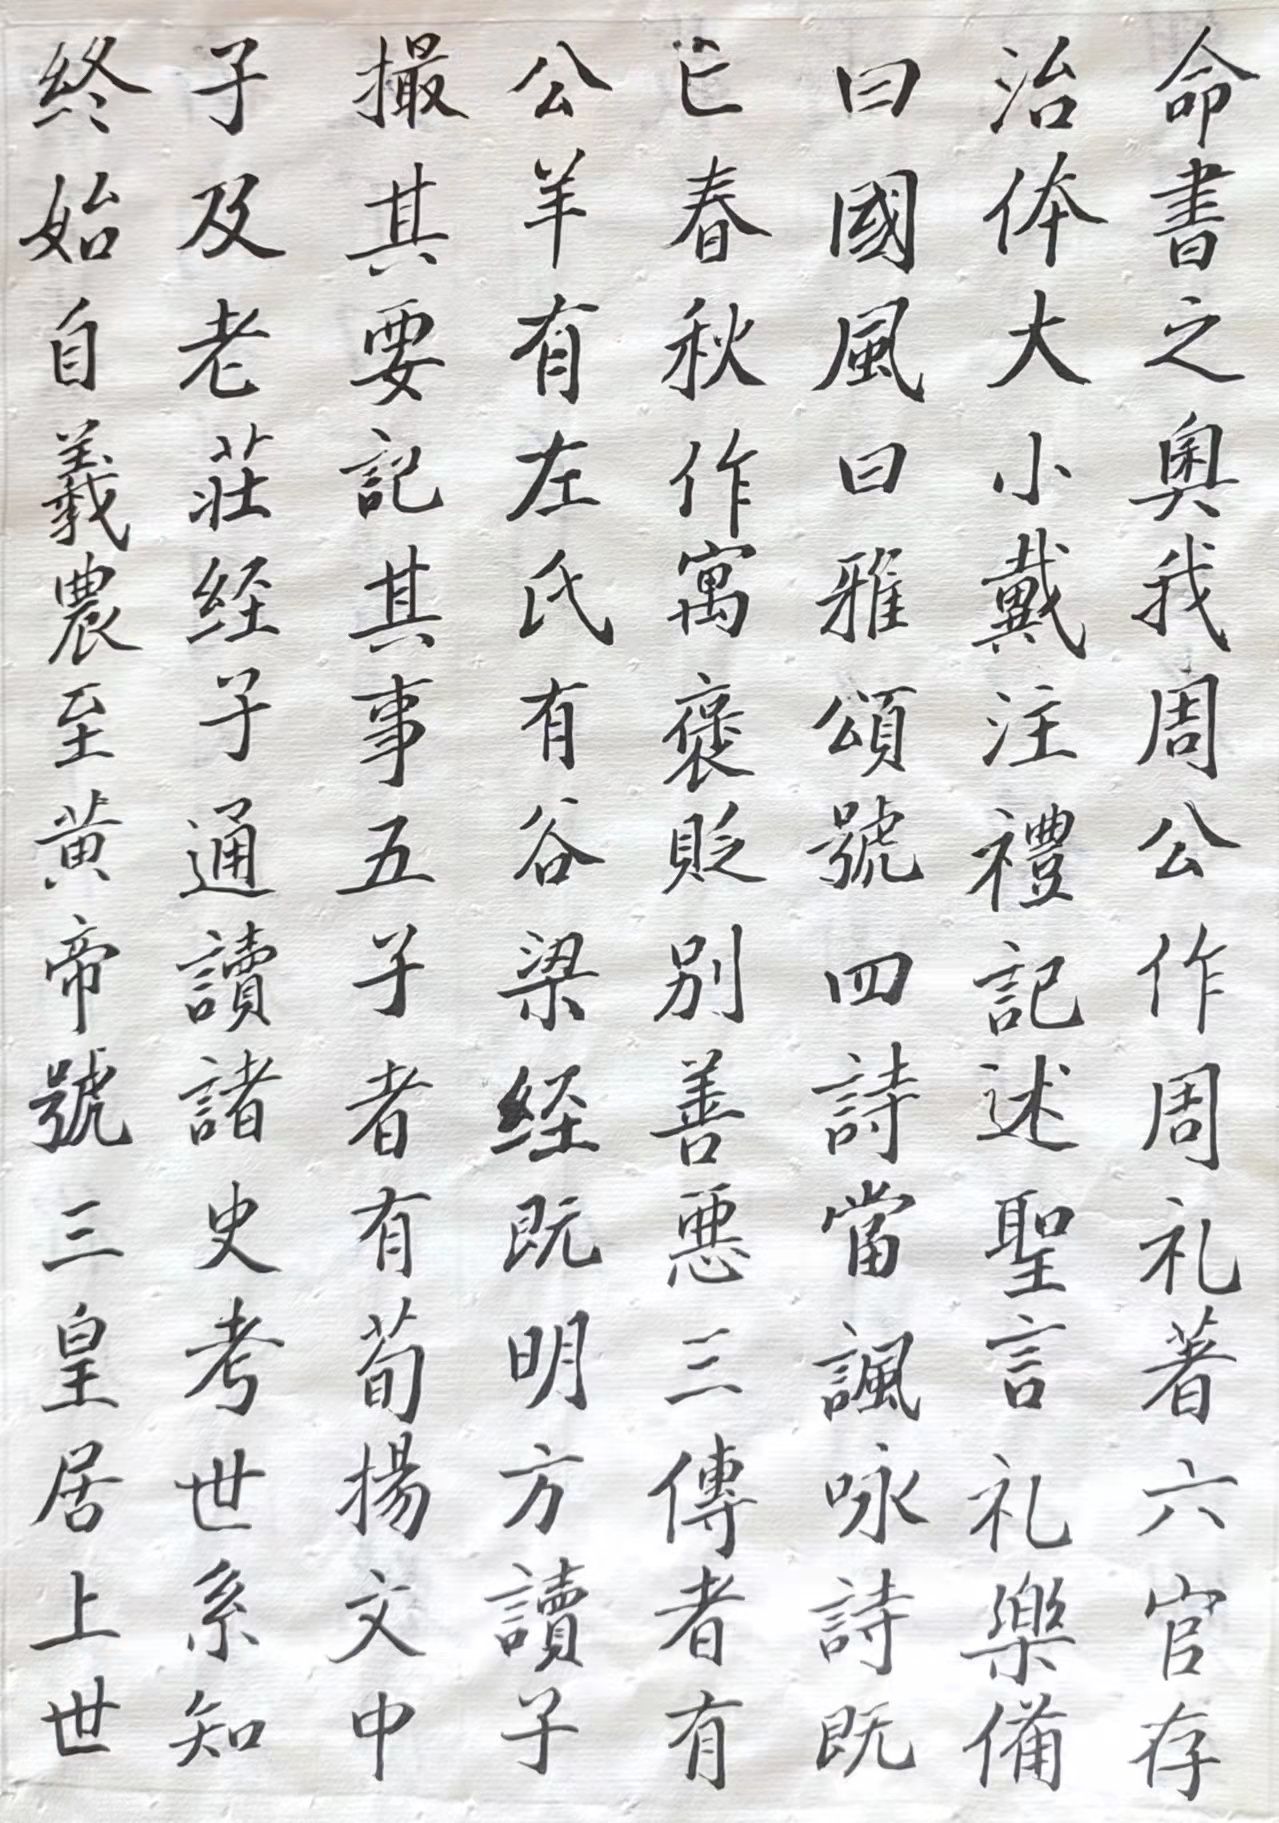 命書之奥我周公作周礼著六官存
治体大小戴注禮記述聖言礼樂備
曰國風曰雅頌號四詩當諷咏詩既
亡春秋作寓褒貶別善惡三傳者有
公羊有左氏有谷梁経既明方讀子
撮其要記其事五子者有荀揚文中
子及老莊経子通讀諸史考世系知
終始自羲農至黄帝號三皇居上世